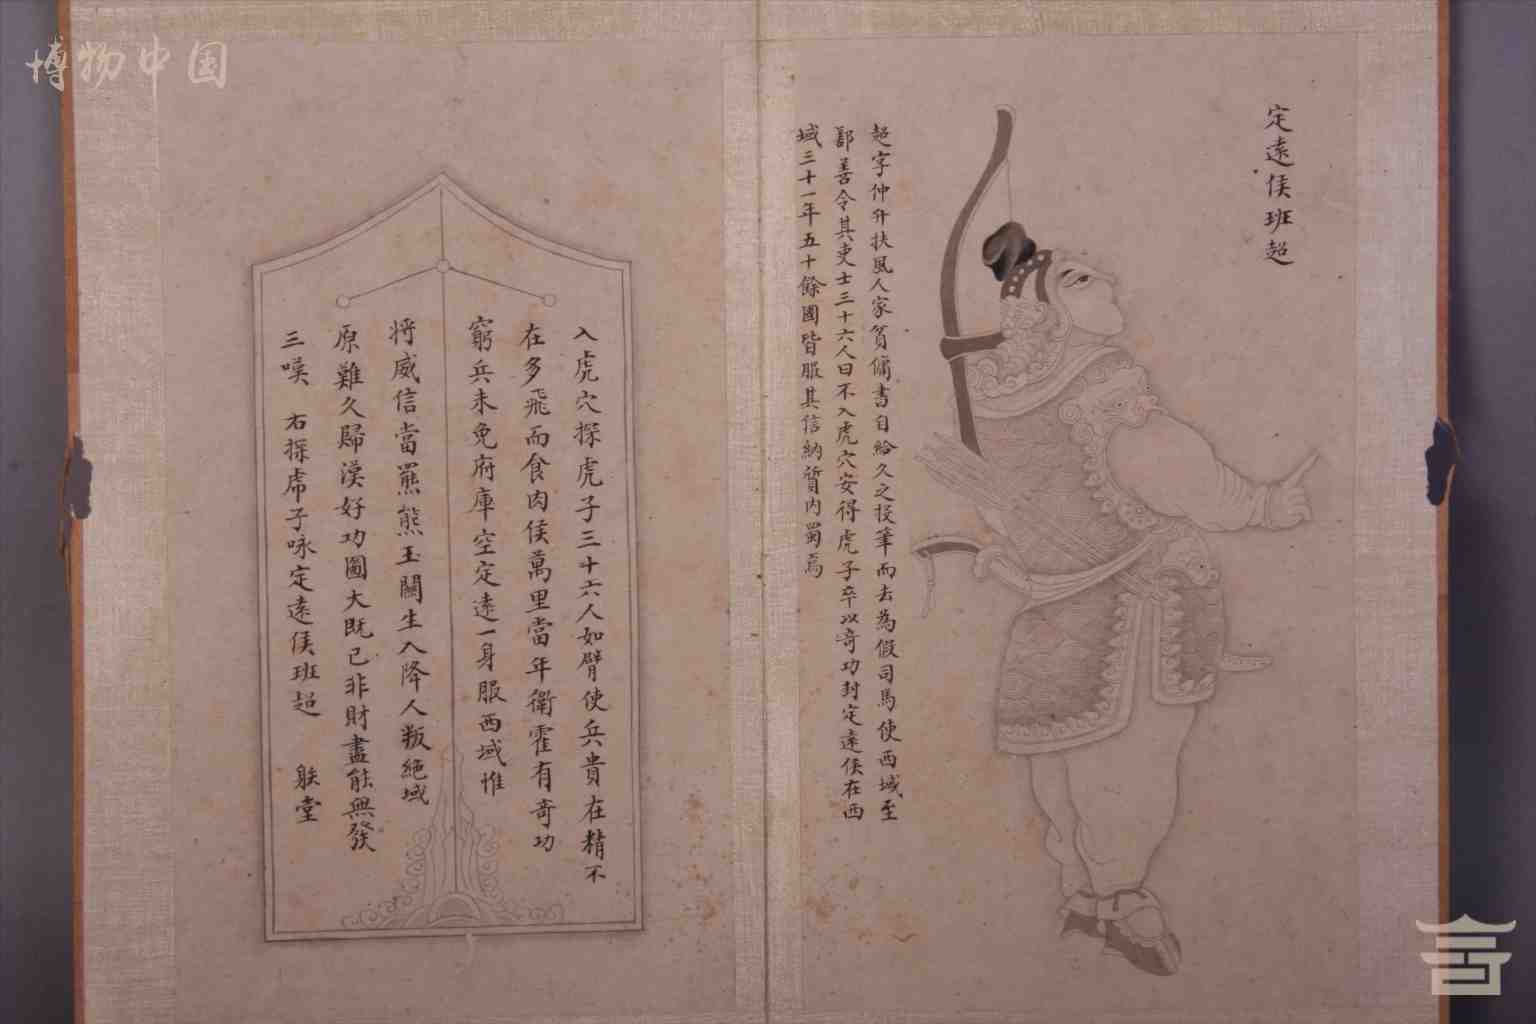 博物中国
定遠侯班超
超字仲升扶風人家貧傭書自給久之投筆而去為假司馬使西域至
鄯善令其吏士三十六人曰不入虎穴安得虎子卒以奇功封定遠侯在西
域三十一年五十餘國皆服其信納質内蜀焉
入虎穴探虎子三十六人如臂使兵貴在精不
在多飛而食肉侯萬里當年衛霍有奇功
窮兵未免府庫空定遠一身服西域惟
將威信當羆熊玉關生入降人叛絕域
原難久歸漢好功圖大既已非財盡能無發
三嘆 右探虎子咏定遠侯班超 躲堂